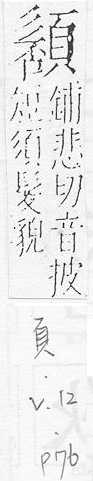 鋪悲切音披
短須髮貌
頁.
v.12
.
p76